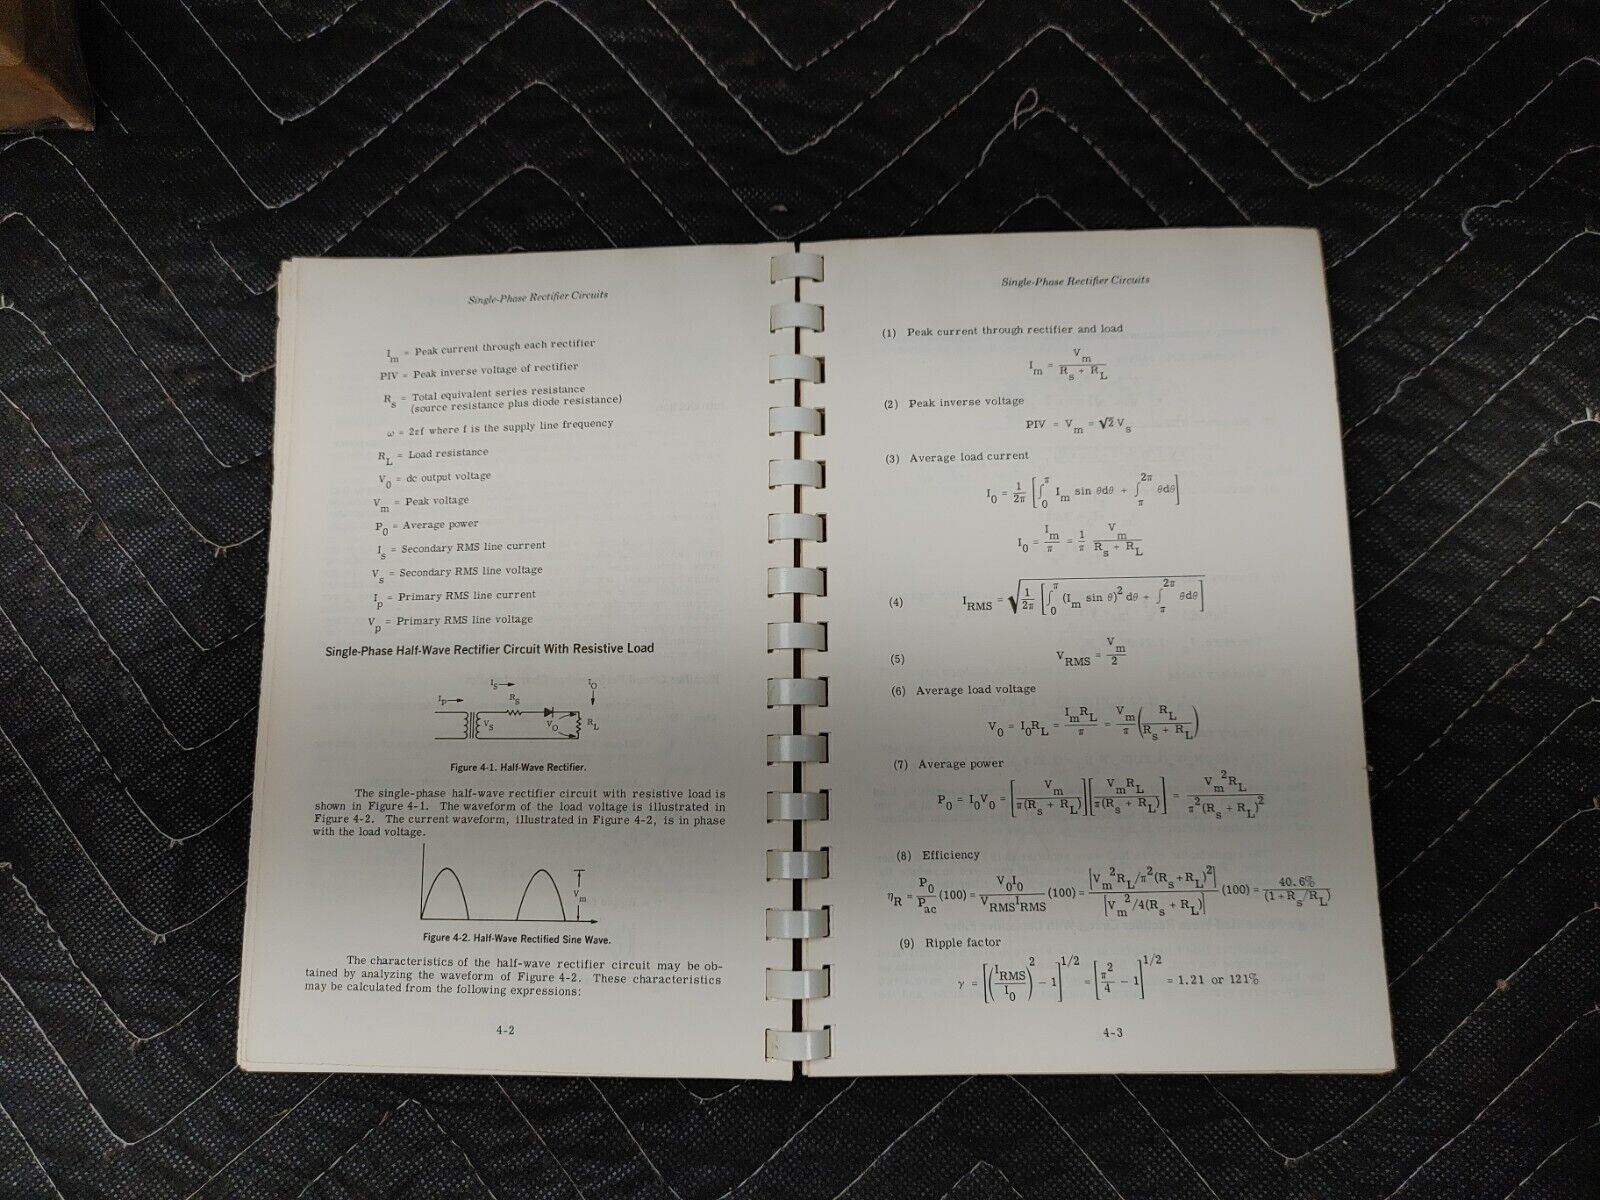 Single-Phase Rectifier Circuits
I_m = Peak current through each rectifier
PIV = Peak inverse voltage of rectifier
R_s = Total equivalent series resistance
(source resistance plus diode resistance)
ω = 2πf where f is the supply line frequency
R_L = Load resistance
V_0 = dc output voltage
V_m = Peak voltage
P_0 = Average power
I_s = Secondary RMS line current
V_s = Secondary RMS line voltage
I_p = Primary RMS line current
V_p = Primary RMS line voltage
Single-Phase Half-Wave Rectifier Circuit With Resistive Load
I_P I_S R_S I_O
V_S V_O R_L
Figure 4-1. Half-Wave Rectifier.
The single-phase half-wave rectifier circuit with resistive load is
shown in Figure 4-1. The waveform of the load voltage is illustrated in
Figure 4-2. The current waveform, illustrated in Figure 4-2, is in phase
with the load voltage.
V_m
Figure 4-2. Half-Wave Rectified Sine Wave.
The characteristics of the half-wave rectifier circuit may be ob-
tained by analyzing the waveform of Figure 4-2. These characteristics
may be calculated from the following expressions:
4-2
Single-Phase Rectifier Circuits
(1) Peak current through rectifier and load
I_m = V_m / (R_s + R_L)
(2) Peak inverse voltage
PIV = V_m = √2 V_s
(3) Average load current
I_0 = 1/2π [∫_0^π I_m sin θdθ + ∫_π^2π θdθ]
I_0 = I_m/π = 1/π V_m/(R_s + R_L)
(4) I_RMS = √(1/2π [∫_0^π (I_m sin θ)^2 dθ + ∫_π^2π θdθ])
(5) V_RMS = V_m/2
(6) Average load voltage
V_0 = I_0R_L = I_mR_L/π = V_m/π (R_L/(R_s + R_L))
(7) Average power
P_0 = I_0V_0 = [V_m/π(R_s + R_L)][V_mR_L/π(R_s + R_L)] = V_m^2R_L/π^2(R_s + R_L)^2
(8) Efficiency
η_R = P_0/P_ac (100) = V_0I_0/V_RMSI_RMS (100) = [V_m^2R_L/π^2(R_s+R_L)^2]/[V_m^2/4(R_s + R_L)] (100) = 40.6%/(1+R_s/R_L)
(9) Ripple factor
γ = [(I_RMS/I_0)^2 - 1]^1/2 = [π^2/4 - 1]^1/2 = 1.21 or 121%
4-3